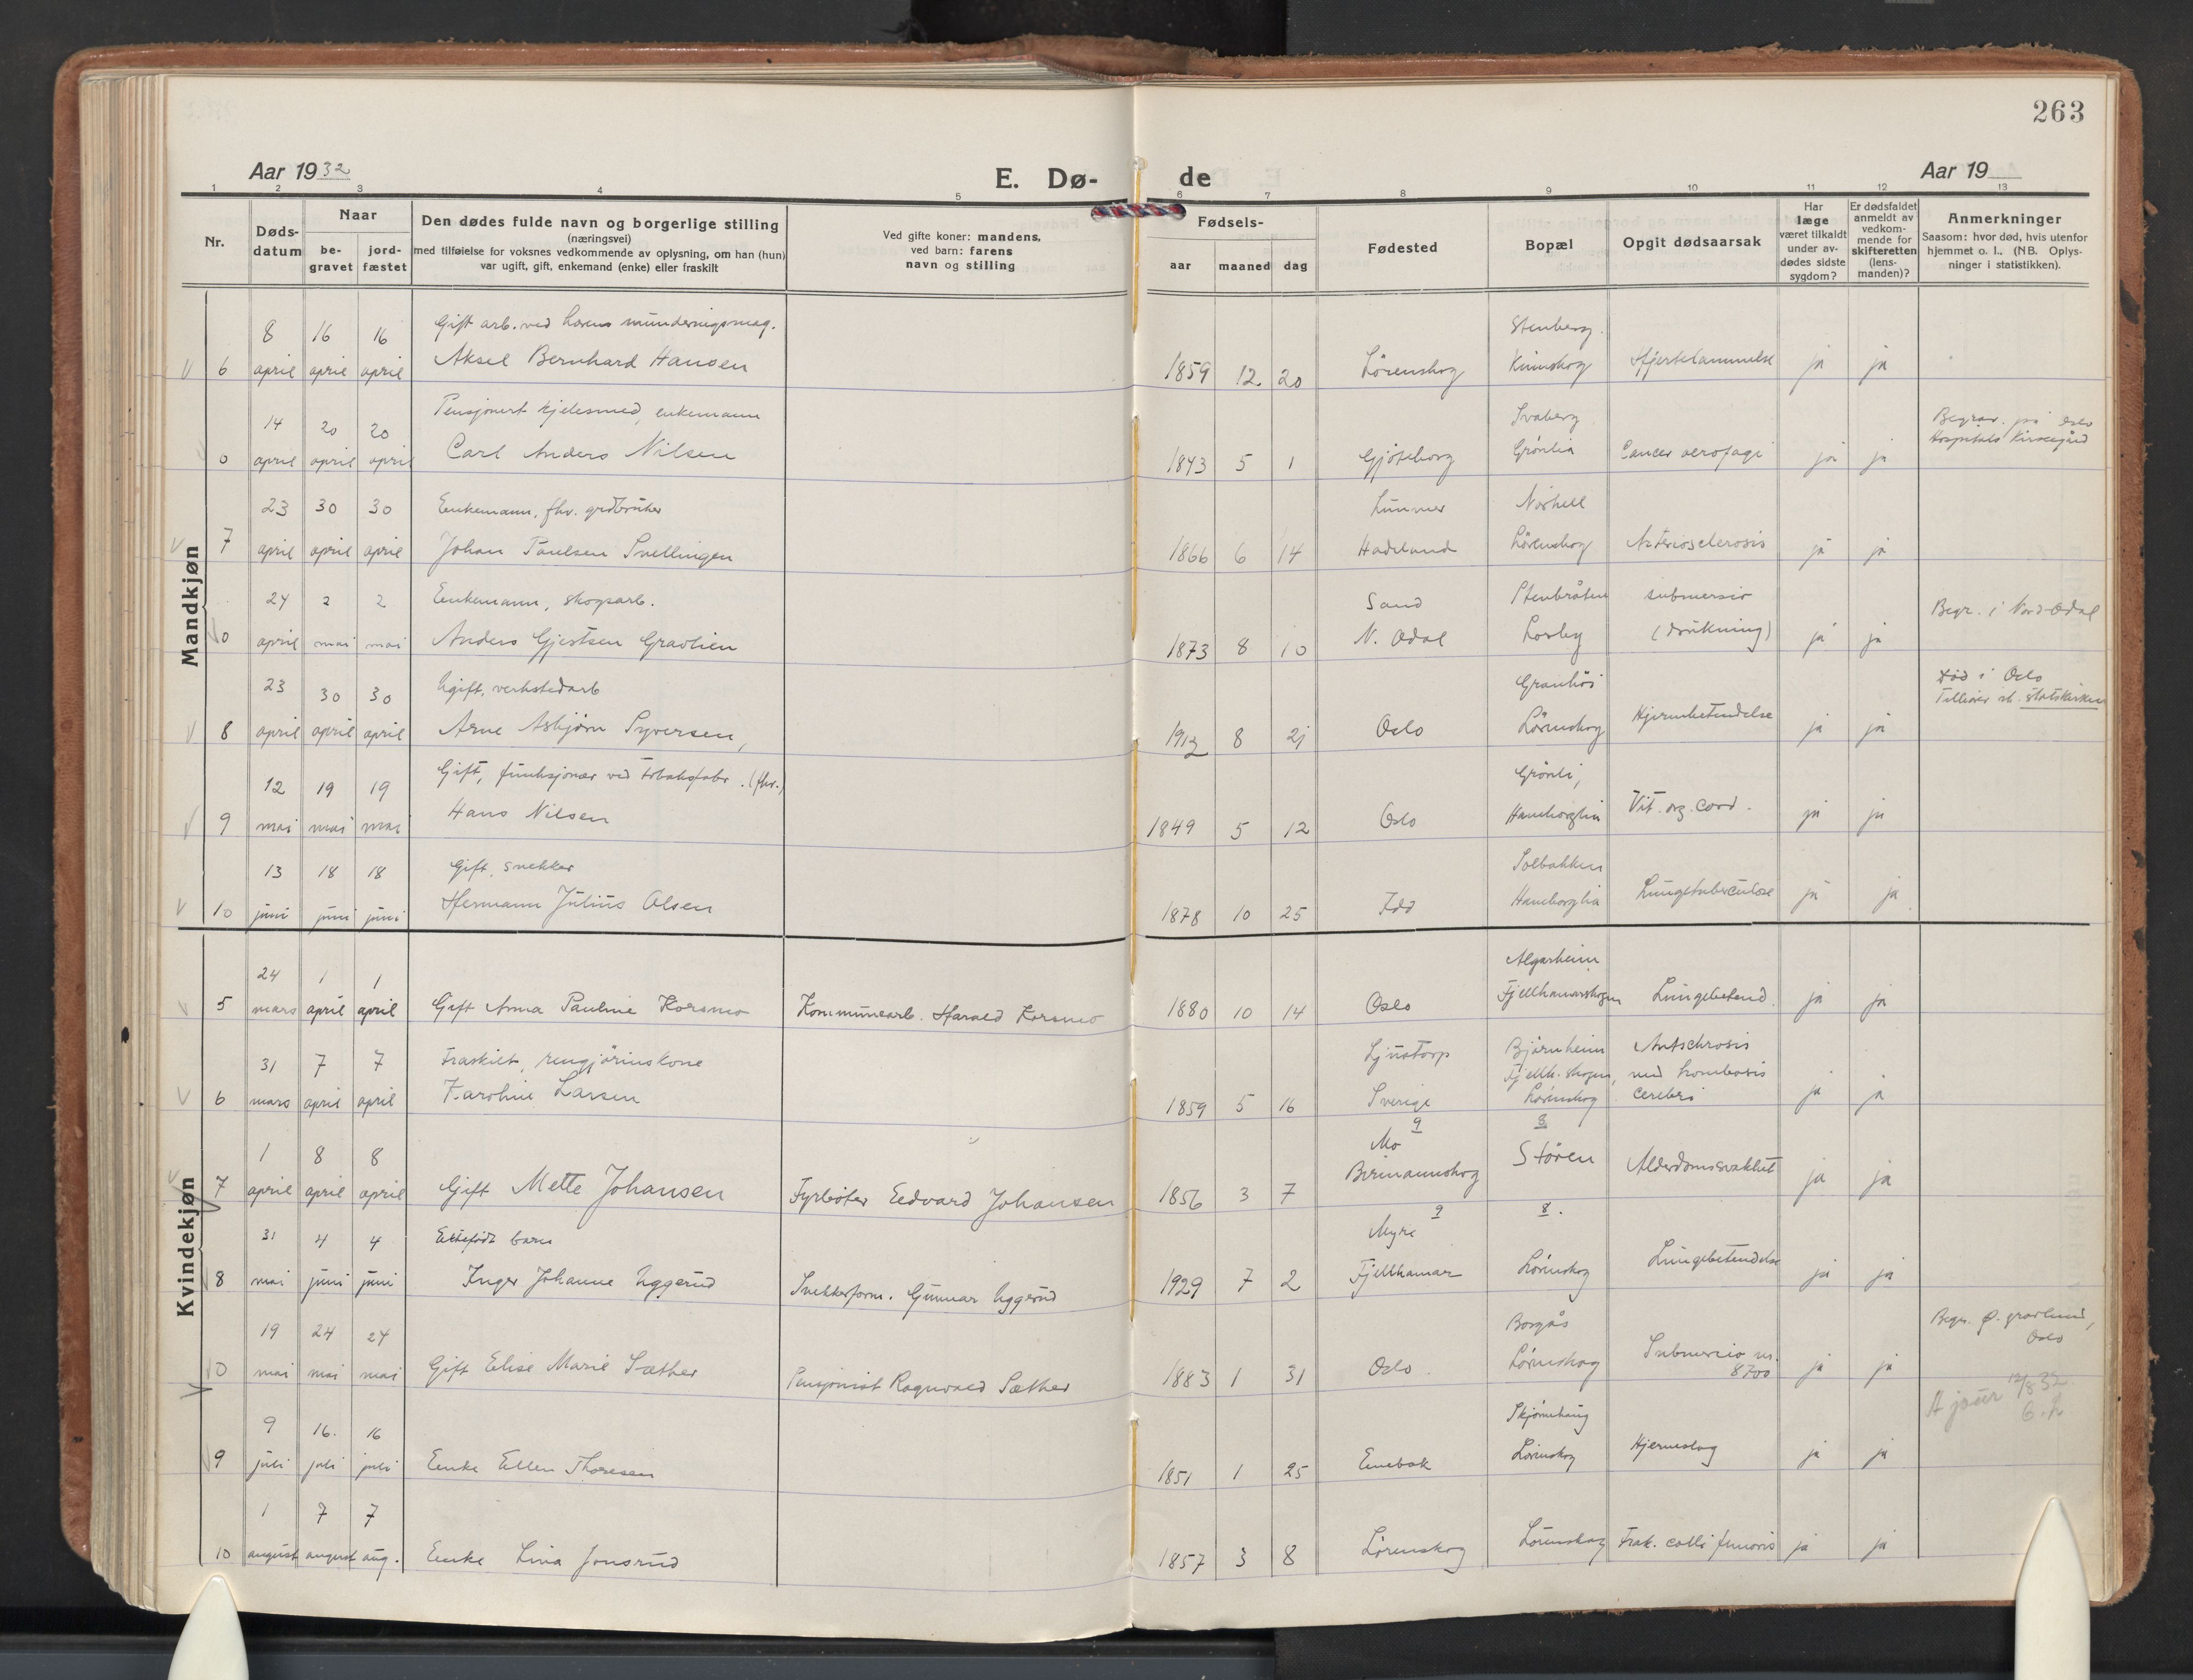 263
Aar 1932
E. Dø-
de
Aar 19
1 2 3 4 5 6 7 8 9 10 11 12 13
Nr.
Døds-
datum
Naar
be-
gravet
jord-
fæstet
Den dødes fulde navn og borgerlige stilling
(næringsvei)
med tilføielse for voksnes vedkommende av oplysning, om han (hun)
var ugift, gift, enkemand (enke) eller fraskilt
Ved gifte koner: mandens,
ved barn: farens
navn og stilling
Fødsels-
aar maaned dag
Fødested
Bopæl
Opgit dødsaarsak
Har
læge
været tilkaldt
under av-
dødes sidste
sygdom?
Er dødsfaldet
anmeldt av
vedkom-
mende for
skifteretten
(lens-
manden)?
Anmerkninger
Saasom: hvor død, hvis utenfor
hjemmet o. l. (NB. Oplys-
ninger i statistikken).
Mandkjøn
8 16 16 Gift arb. ved hærens munderingsmag. Stenberg.
6 april april april Aksel Bernhard Hansen 1859 12. 20 Lørenskog Kinnskog Hjertelammelse ja ja
14 20 20 Pensjonert kjelesmed, enkemann Svaberg Begrav. på Oslo
Hospitals Kirkegård
0 april april april Carl Anders Nilsen 1843 5 1 Gjøteborg Grønlia Cancer oerofagi ja ja
23 30 30 Enkemann, fhv. grdbruker Lunner Norhell
7 april april april Johan Paulsen Svellingen 1866 6 14 Hadeland Lørenskog Arteriosclerosis ja ja
24 2 2 Enkemann, skogsarb. Sand Stenbråten submersio Begr. i Nord-Odal
0 april mai mai Anders Gjestsen Gravlien 1873 8 10 N. Odal Losby (drukning) ja ja
23 30 30 Ugift, verkstedarb Granhøi Død i Oslo
Tilhører st. statskirken
8 april april april Arne Asbjørn Syversen, 1912 8 21 Oslo Lørenskog Hjernebetendelse ja ja
12 19 19 Gift, funksjonær ved tobaksfabr. (fhv.) Grönli,
9 mai mai mai Hans Nilsen 1849 5 12 Oslo Haneborglia Vit. org. cord. ja ja
13 18 18 Gift, snekker Solbakken
10 juni juni juni Hermann Julius Olsen 1878 10 25 Idd Haneborglia Lungetuberculose ja ja
Kvindekjøn
24 1 1 Algarheim
5 mars april april Gift Anna Pauline Korsmo Kommunearb. Harald Korsmo 1880 10 14 Oslo Fjellhamarskogen Lungebetend. ja ja
31 7 7 Fraskilt, rengjøringskone Ljustorp Bjørnheim Artschrosis
Fjellh. skogen, med trombosis
6 mars april april Karoline Larsen 1859 5 16 Sverige Lørenskog cerebri ja ja
9 8
1 8 8 Mo
7 april april april Gift Mette Johansen Fyrbøter Edvard Johansen 1856 3 7 Støren Alderdomssvakhet ja ja
9 8.
31 4 4 Ektefødt barn Myre
8 mai juni juni Inger Johanne Uggerud Snekkerform. Gunnar Uggerud 1929 7 2 Fjellhamar Lørenskog Lungebetendelse ja ja
19 24 24 Borgås Begr. Ø. gravlund,
Oslo
0 mai mai mai Gift Elise Marie Sæther Pensjonist Ragnvald Sæther 1883 1 31 Oslo Lørenskog Submersio nr.
8700 ja ja
9 16. 16 Skjønnhaug A jour 12/8 32
9 juli juli juli Enke Ellen Thoresen 1851 1 25 Enebak Lørenskog Hjerneslag ja ja
1 7 7
10 august august aug. Enke Lina Jonsrud 1857 3 8 Lørenskog Lørenskog Frak. colli femoris ja ja